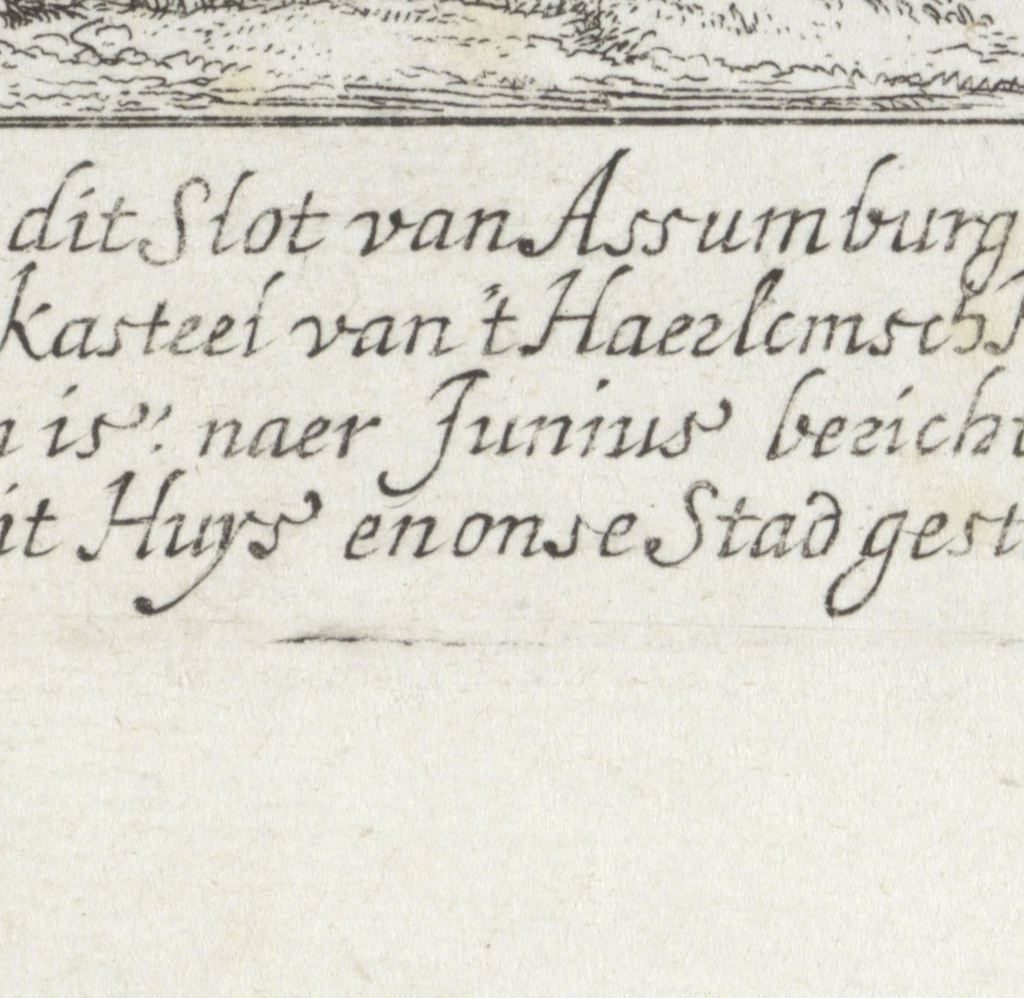 dit Slot van Assumburg
kasteel van 't Haerlemsch
is: naer Junius bericht
it Huys en onse Stad gest